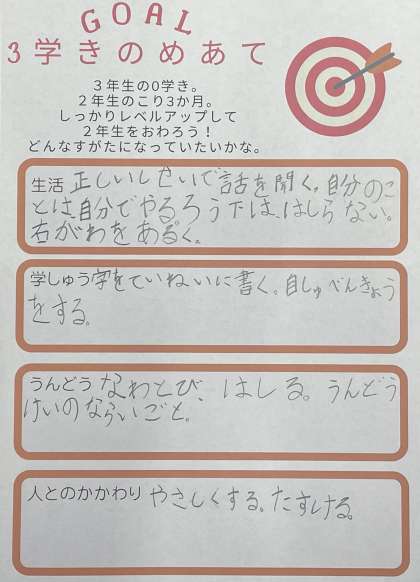 GOAL
3学きのめあて
3年生の0学き。
2年生のこり3か月。
しっかりレベルアップして
2年生をおわろう！
どんなすがたになっていたいかな。
生活 正しいしせいで話を聞く。自分のこ
とは、自分でやる。ろう下は、はしらない。
右がわをあるく。
学しゅう 字をていねいに書く。自しゅべんきょう
をする。
うんどう なわとび、はしる。うんどう
けいのならいごと。
人とのかかわり やさしくする。たすける。